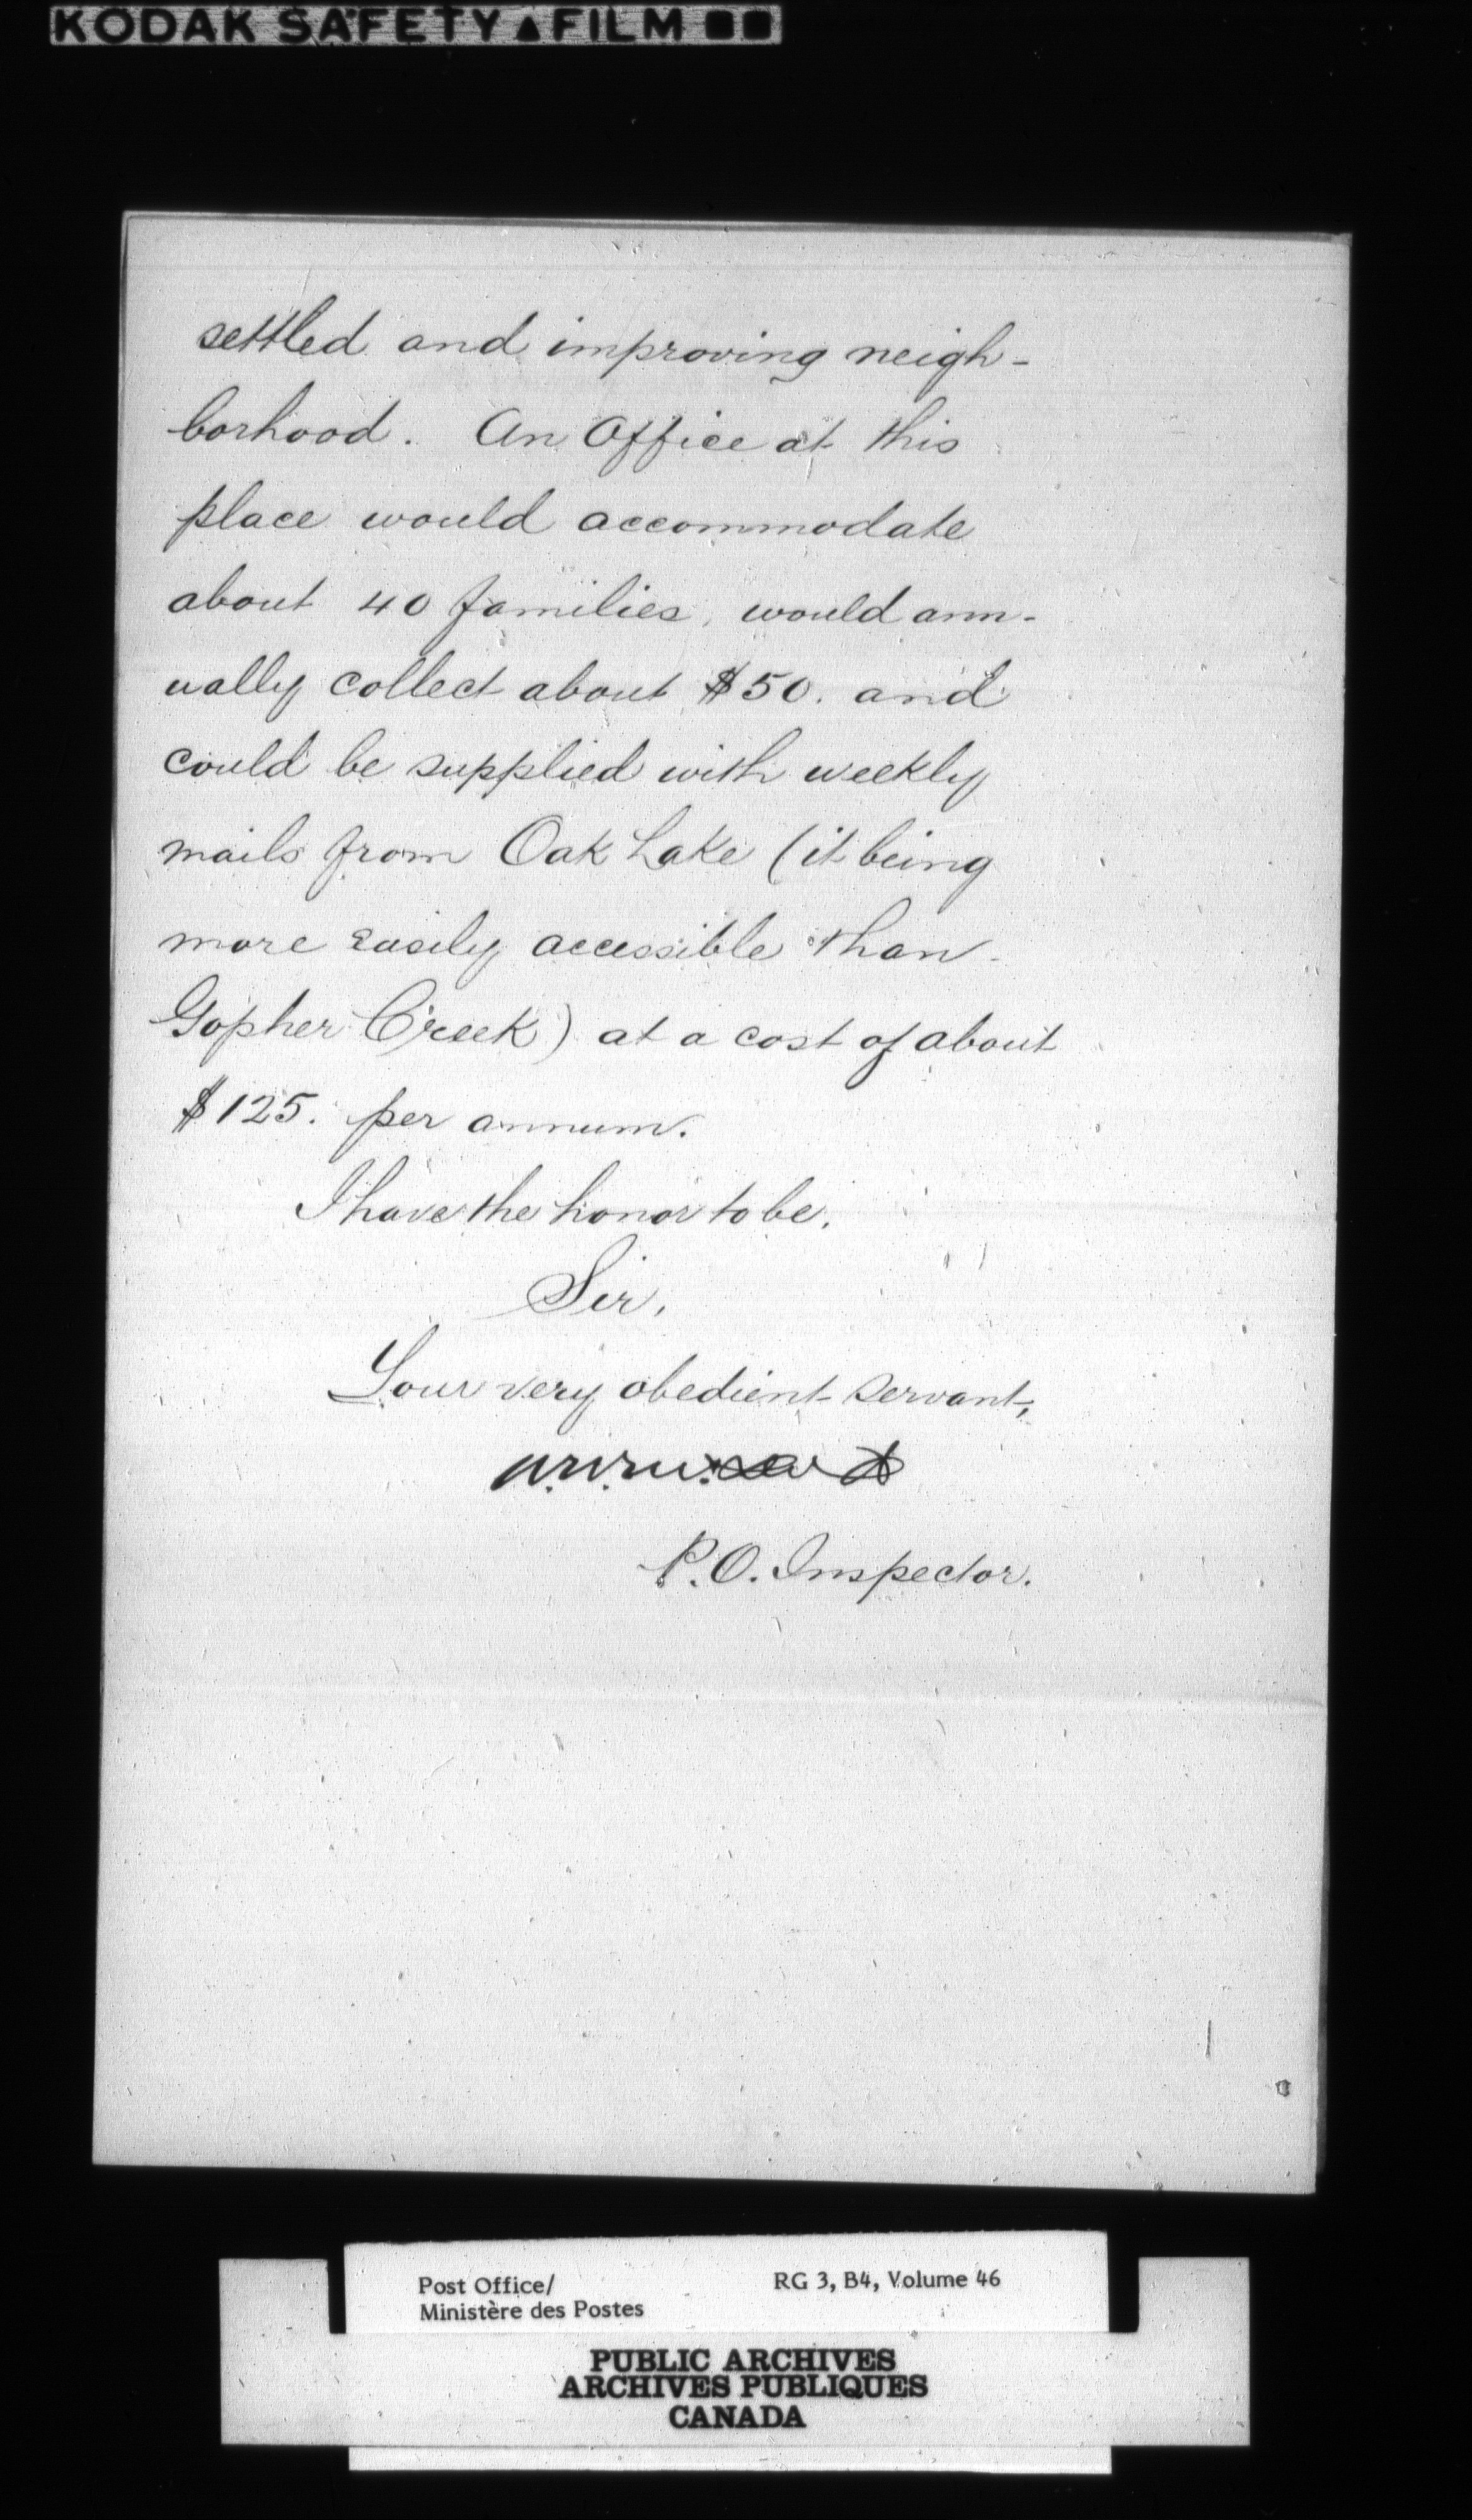 KODAK SAFETY FILM
settled and improving neigh-
borhood. An Office at this
place would accommodate
about 40 families, would ann-
ually collect about $50. and
could be supplied with weekly
mails from Oak Lake (it being
more easily accessible than
Gopher Creek) at a cost of about
$125. per annum.
I have the honor to be,
Sir,
Your very obedient servant,
P.O. Inspector.
Post Office/ RG 3, B4, Volume 46
Ministère des Postes
PUBLIC ARCHIVES
ARCHIVES PUBLIQUES
CANADA